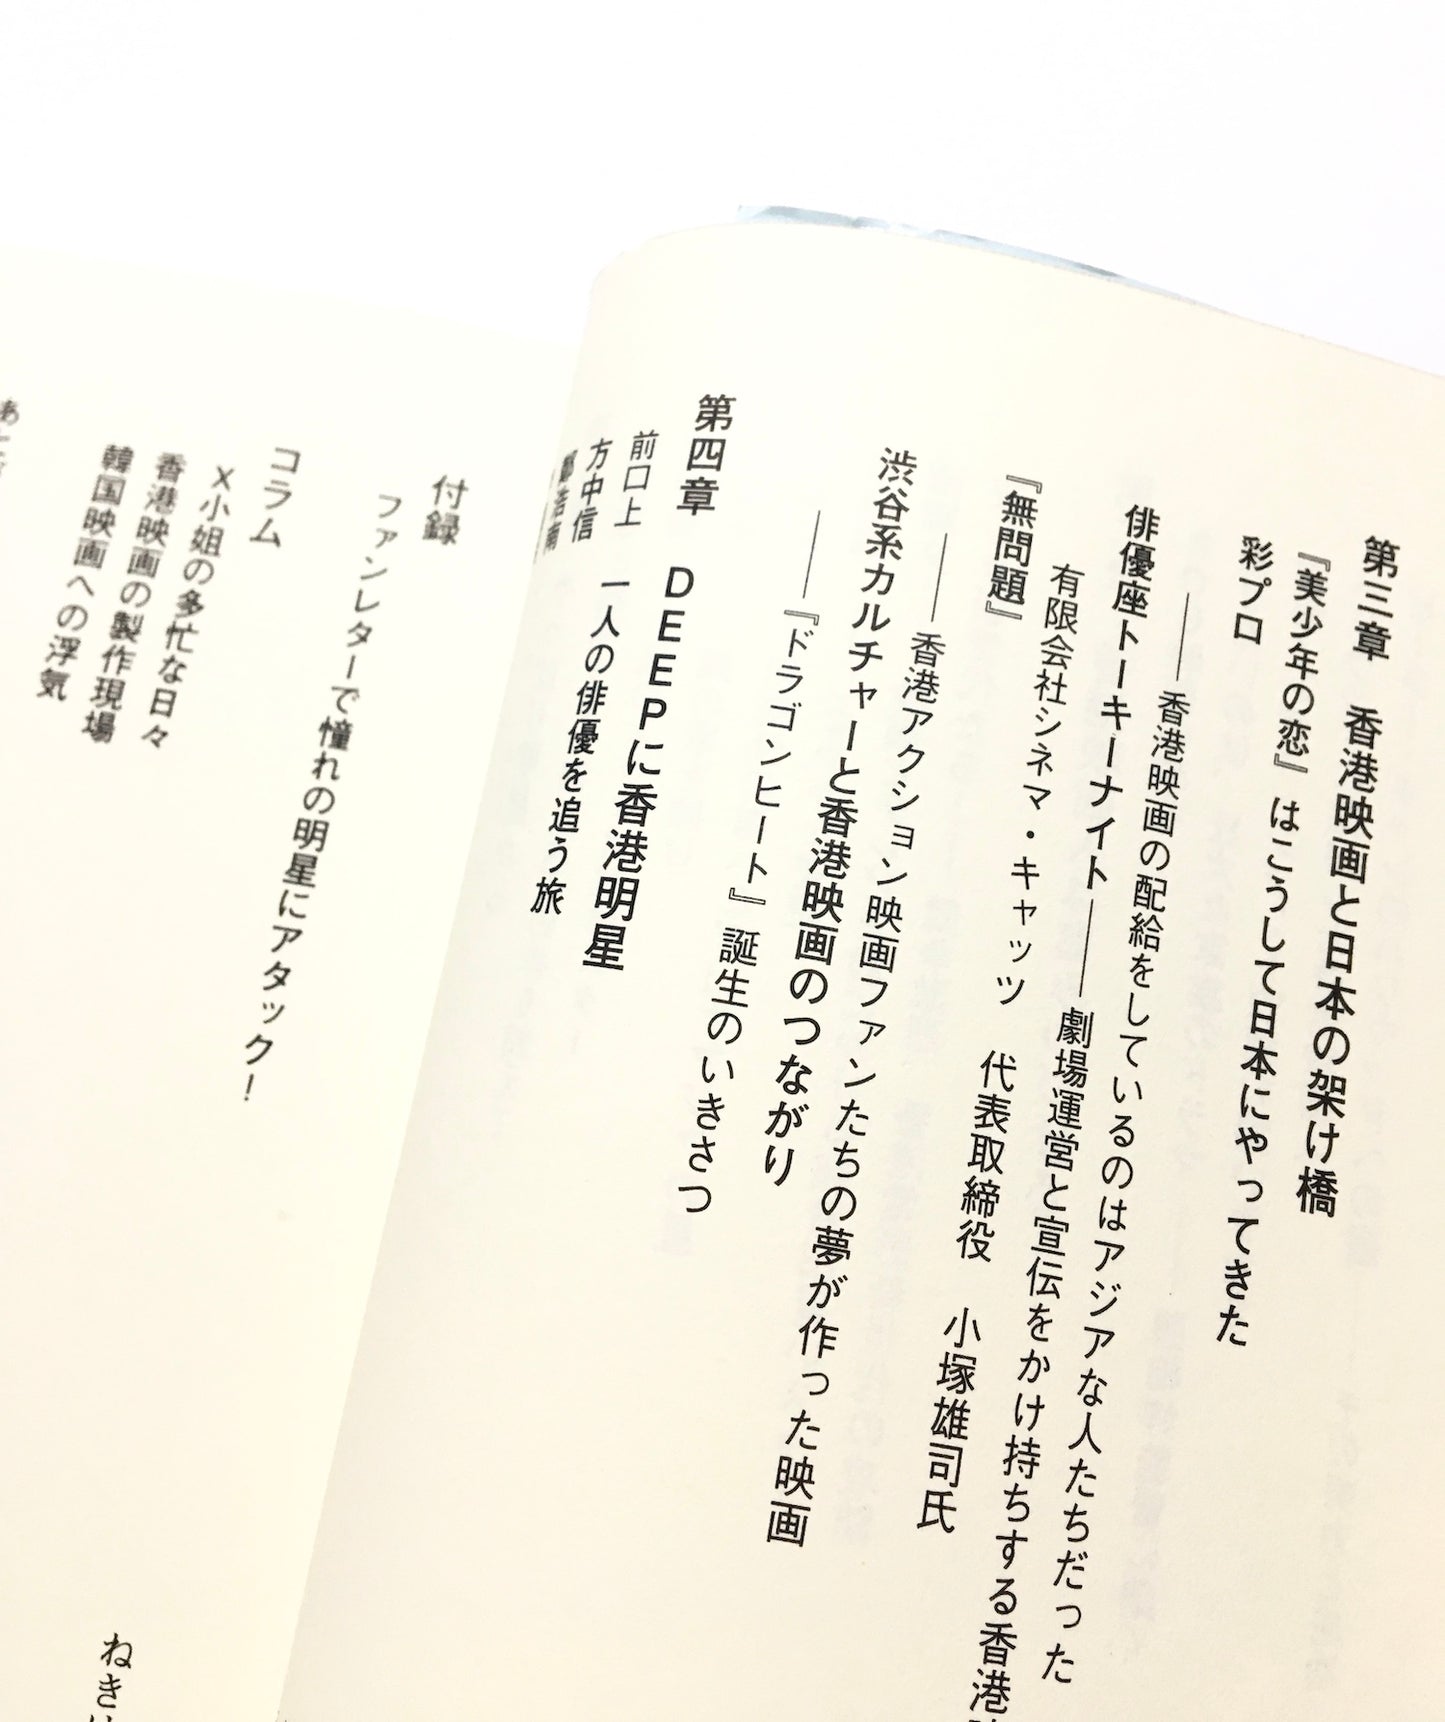 第三章　香港映画と日本の架け橋
『美少年の恋』はこうして日本にやってきた
彩プロ
――香港映画の配給をしているのはアジアな人たちだった
俳優座トーキーナイト――劇場運営と宣伝をかけ持ちする香港
有限会社シネマ・キャッツ　代表取締役　小塚雄司氏
『無問題』
――香港アクション映画ファンたちの夢が作った映画
渋谷系カルチャーと香港映画のつながり
――『ドラゴンヒート』誕生のいきさつ
第四章　DEEPに香港明星
前口上　一人の俳優を追う旅
方中信
鄭浩南
付録
ファンレターで憧れの明星にアタック！
コラム
X小姐の多忙な日々
香港映画の製作現場
韓国映画への浮気